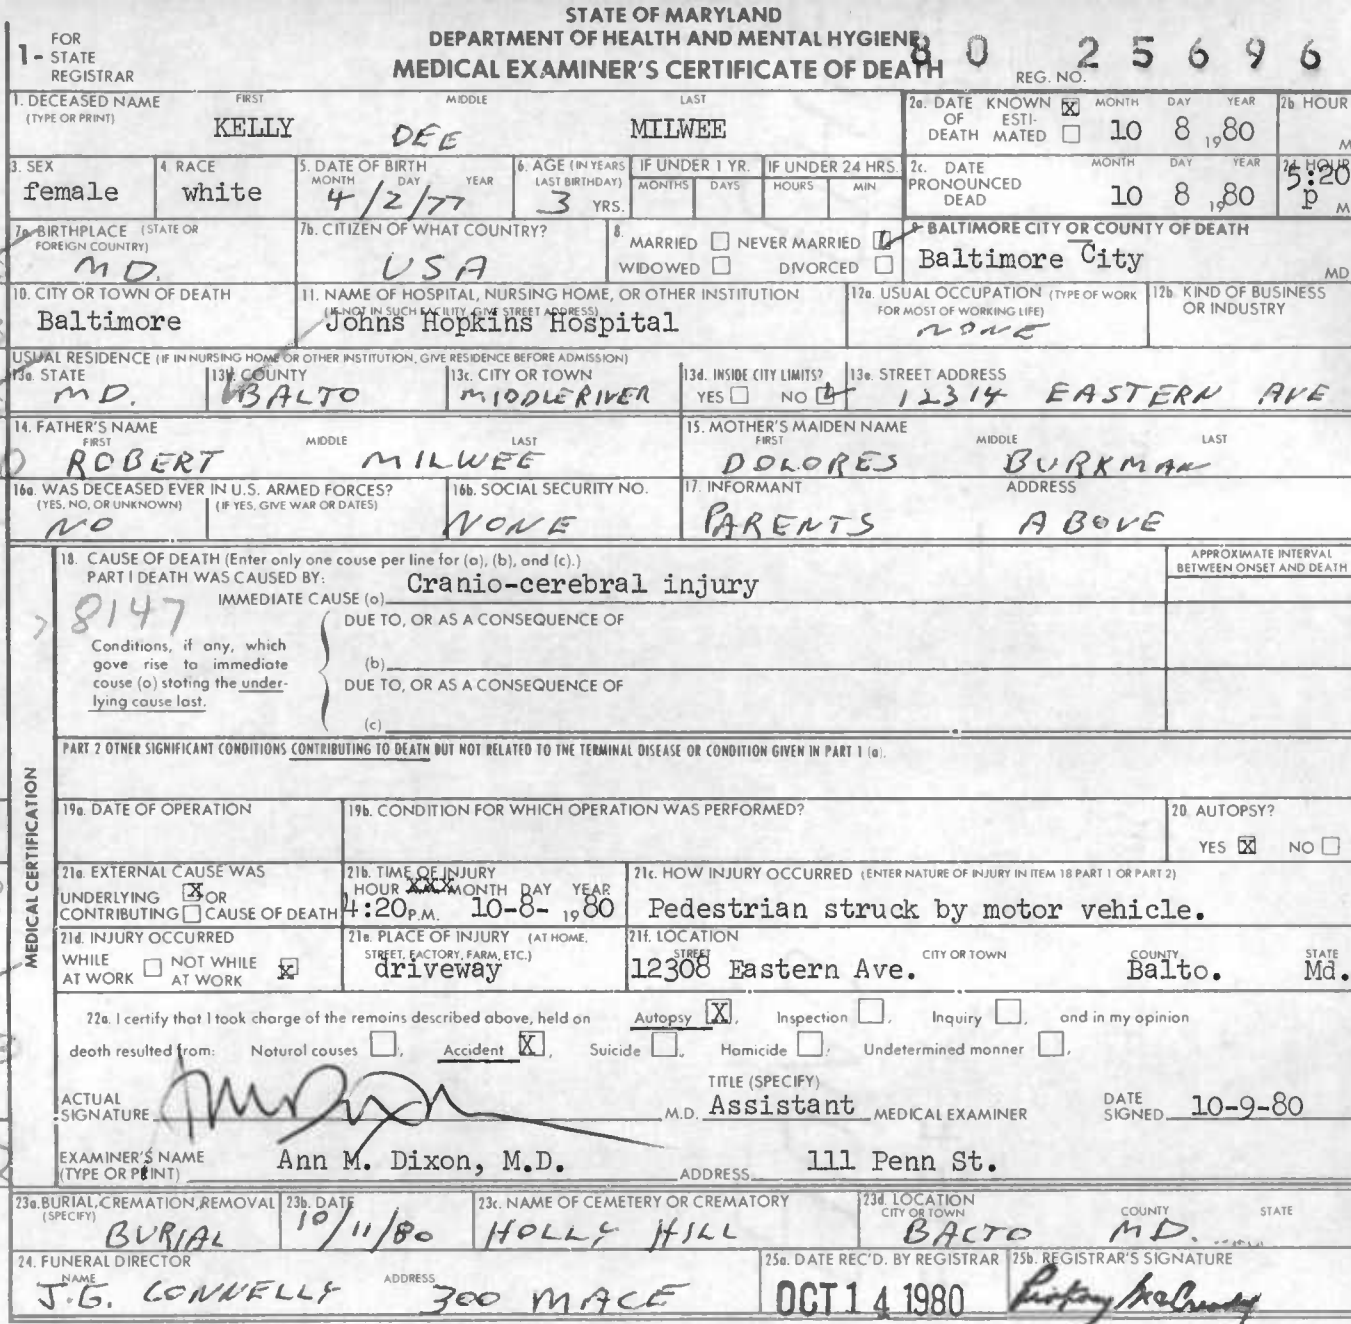 STATE OF MARYLAND
DEPARTMENT OF HEALTH AND MENTAL HYGIENE
MEDICAL EXAMINER'S CERTIFICATE OF DEATH
1- FOR STATE REGISTRAR
REG. NO. 80 25696
1. DECEASED NAME (TYPE OR PRINT) FIRST MIDDLE LAST
KELLY DEE MILWEE
2a. DATE OF DEATH KNOWN X ESTIMATED MONTH DAY YEAR
10 8 1980
2b HOUR M
3. SEX
female
4 RACE
white
5. DATE OF BIRTH MONTH DAY YEAR
4/2/77
6. AGE (IN YEARS LAST BIRTHDAY)
3 YRS.
IF UNDER 1 YR. MONTHS DAYS
IF UNDER 24 HRS. HOURS MIN
2c. DATE PRONOUNCED DEAD MONTH DAY YEAR
10 8 1980
2d. HOUR
5:20 p M
7a. BIRTHPLACE (STATE OR FOREIGN COUNTRY)
MD.
7b. CITIZEN OF WHAT COUNTRY?
USA
8. MARRIED NEVER MARRIED
WIDOWED DIVORCED
9 BALTIMORE CITY OR COUNTY OF DEATH
Baltimore City MD
10. CITY OR TOWN OF DEATH
Baltimore
11. NAME OF HOSPITAL, NURSING HOME, OR OTHER INSTITUTION
(IF NOT IN SUCH FACILITY, GIVE STREET ADDRESS)
Johns Hopkins Hospital
12a. USUAL OCCUPATION (TYPE OF WORK FOR MOST OF WORKING LIFE)
NONE
12b. KIND OF BUSINESS OR INDUSTRY
USUAL RESIDENCE (IF IN NURSING HOME OR OTHER INSTITUTION, GIVE RESIDENCE BEFORE ADMISSION)
13a. STATE
MD.
13b. COUNTY
BALTO
13c. CITY OR TOWN
MIDDLE RIVER
13d. INSIDE CITY LIMITS?
YES NO
13e. STREET ADDRESS
12314 EASTERN AVE
14. FATHER'S NAME FIRST MIDDLE LAST
ROBERT MILWEE
15. MOTHER'S MAIDEN NAME FIRST MIDDLE LAST
DOLORES BURKMAN
16a. WAS DECEASED EVER IN U.S. ARMED FORCES?
(YES, NO, OR UNKNOWN) (IF YES, GIVE WAR OR DATES)
NO
16b. SOCIAL SECURITY NO.
NONE
17. INFORMANT ADDRESS
PARENTS ABOVE
MEDICAL CERTIFICATION
18. CAUSE OF DEATH (Enter only one couse per line for (a), (b), and (c).)
PART I DEATH WAS CAUSED BY:
IMMEDIATE CAUSE (a) Cranio-cerebral injury
APPROXIMATE INTERVAL BETWEEN ONSET AND DEATH
8147
Conditions, if any, which gave rise to immediate cause (a) stating the underlying cause last.
DUE TO, OR AS A CONSEQUENCE OF
(b)
DUE TO, OR AS A CONSEQUENCE OF
(c)
PART 2 OTHER SIGNIFICANT CONDITIONS CONTRIBUTING TO DEATH BUT NOT RELATED TO THE TERMINAL DISEASE OR CONDITION GIVEN IN PART 1 (a).
19a. DATE OF OPERATION
19b. CONDITION FOR WHICH OPERATION WAS PERFORMED?
20 AUTOPSY?
YES X NO
21a. EXTERNAL CAUSE WAS
UNDERLYING X OR
CONTRIBUTING CAUSE OF DEATH
21b. TIME OF INJURY
HOUR XXX MONTH DAY YEAR
4:20 P.M. 10-8- 1980
21c. HOW INJURY OCCURRED (ENTER NATURE OF INJURY IN ITEM 18 PART 1 OR PART 2)
Pedestrian struck by motor vehicle.
21d. INJURY OCCURRED
WHILE AT WORK NOT WHILE AT WORK X
21e. PLACE OF INJURY (AT HOME, STREET, FACTORY, FARM, ETC.)
driveway
21f. LOCATION STREET CITY OR TOWN COUNTY STATE
12308 Eastern Ave. Balto. Md.
22a. I certify that I took charge of the remains described above, held on Autopsy X, Inspection , Inquiry , and in my opinion
death resulted from: Natural causes , Accident X, Suicide , Homicide , Undetermined manner ,
ACTUAL SIGNATURE M.D.
TITLE (SPECIFY)
Assistant MEDICAL EXAMINER
DATE SIGNED 10-9-80
EXAMINER'S NAME (TYPE OR PRINT) Ann M. Dixon, M.D.
ADDRESS 111 Penn St.
23a. BURIAL, CREMATION, REMOVAL (SPECIFY)
BURIAL
23b. DATE
10/11/80
23c. NAME OF CEMETERY OR CREMATORY
HOLLY HILL
23d. LOCATION CITY OR TOWN COUNTY STATE
BALTO MD.
24. FUNERAL DIRECTOR
NAME ADDRESS
J.G. CONNELLY 300 MACE
25a. DATE REC'D. BY REGISTRAR
OCT 14 1980
25b. REGISTRAR'S SIGNATURE